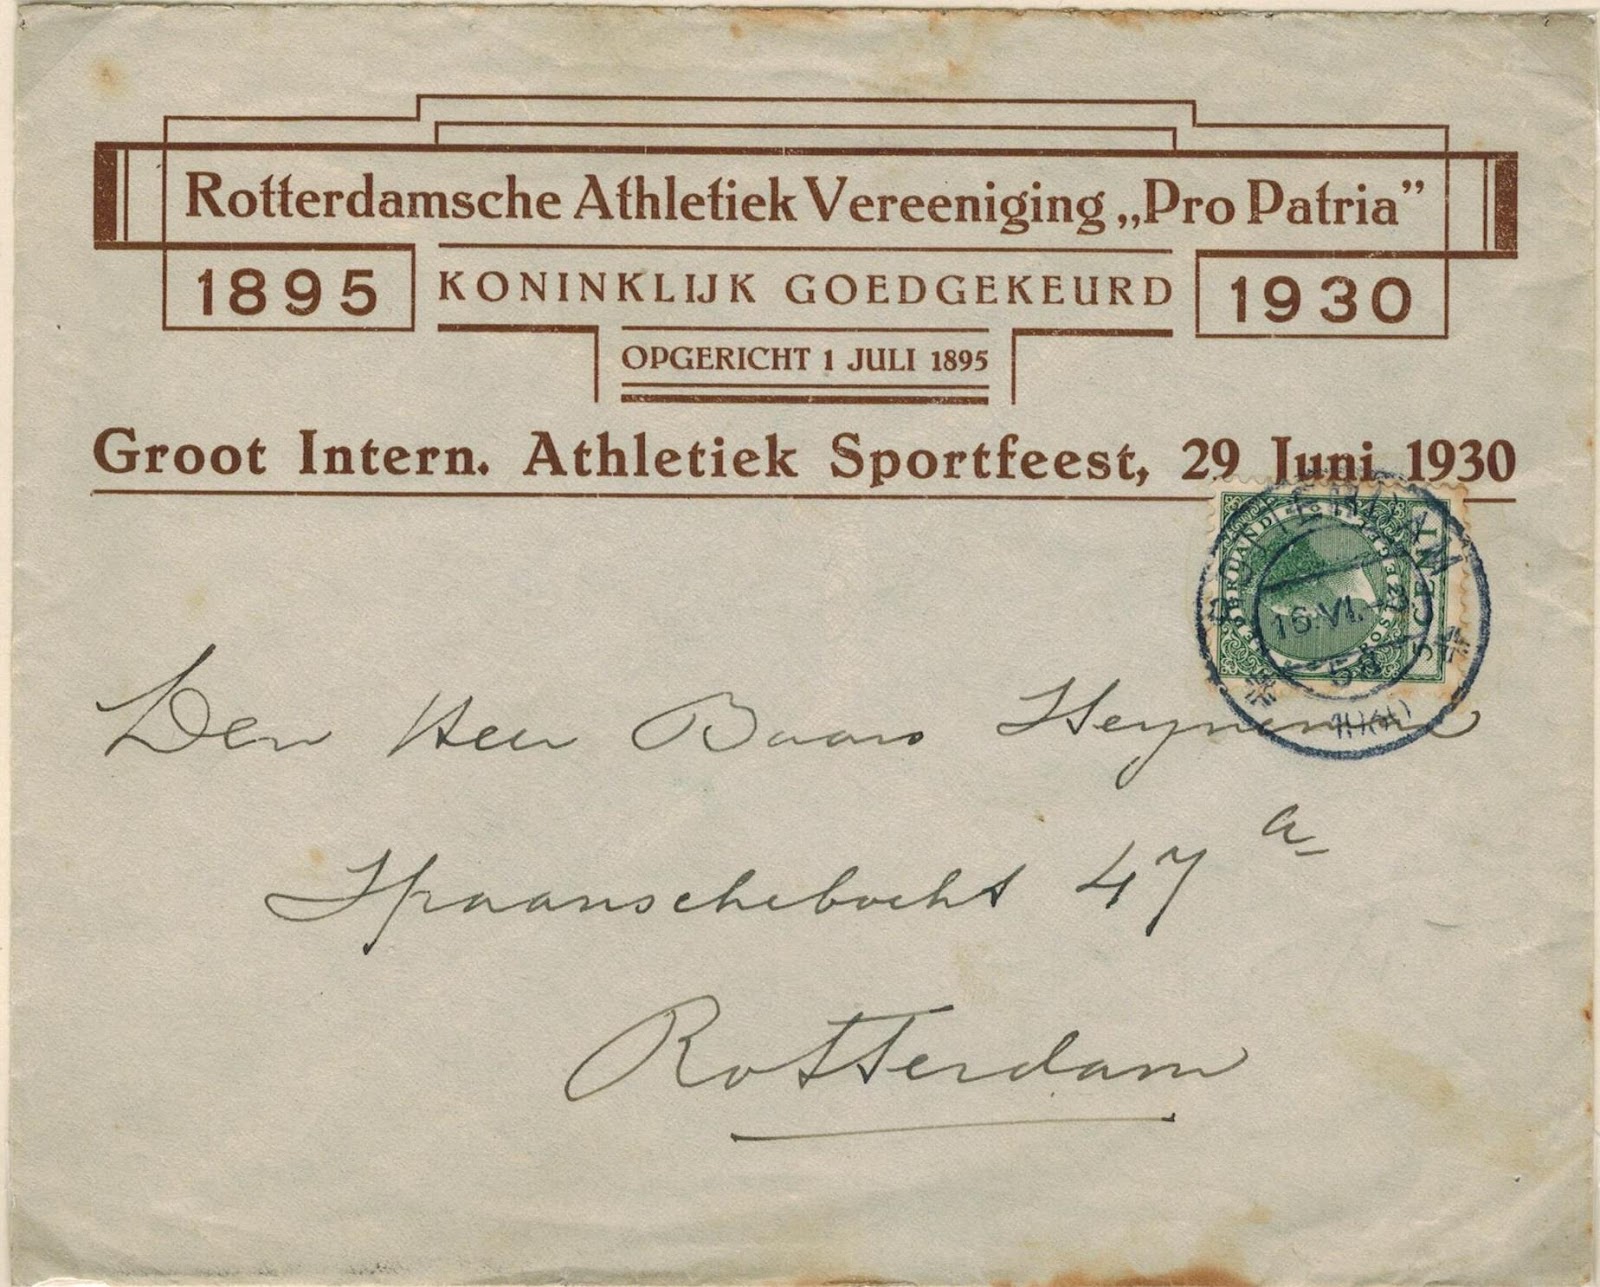 Rotterdamsche Athletiek Vereeniging „Pro Patria”
1895 KONINKLIJK GOEDGEKEURD 1930
OPGERICHT 1 JULI 1895
Groot Intern. Athletiek Sportfeest, 29 Juni 1930
NEDERLAND
POSTZEGEL
5 CENT
ROTTERDAM
16.VI.
1930
Den Heer
Spaanschebocht 47 a
Rotterdam